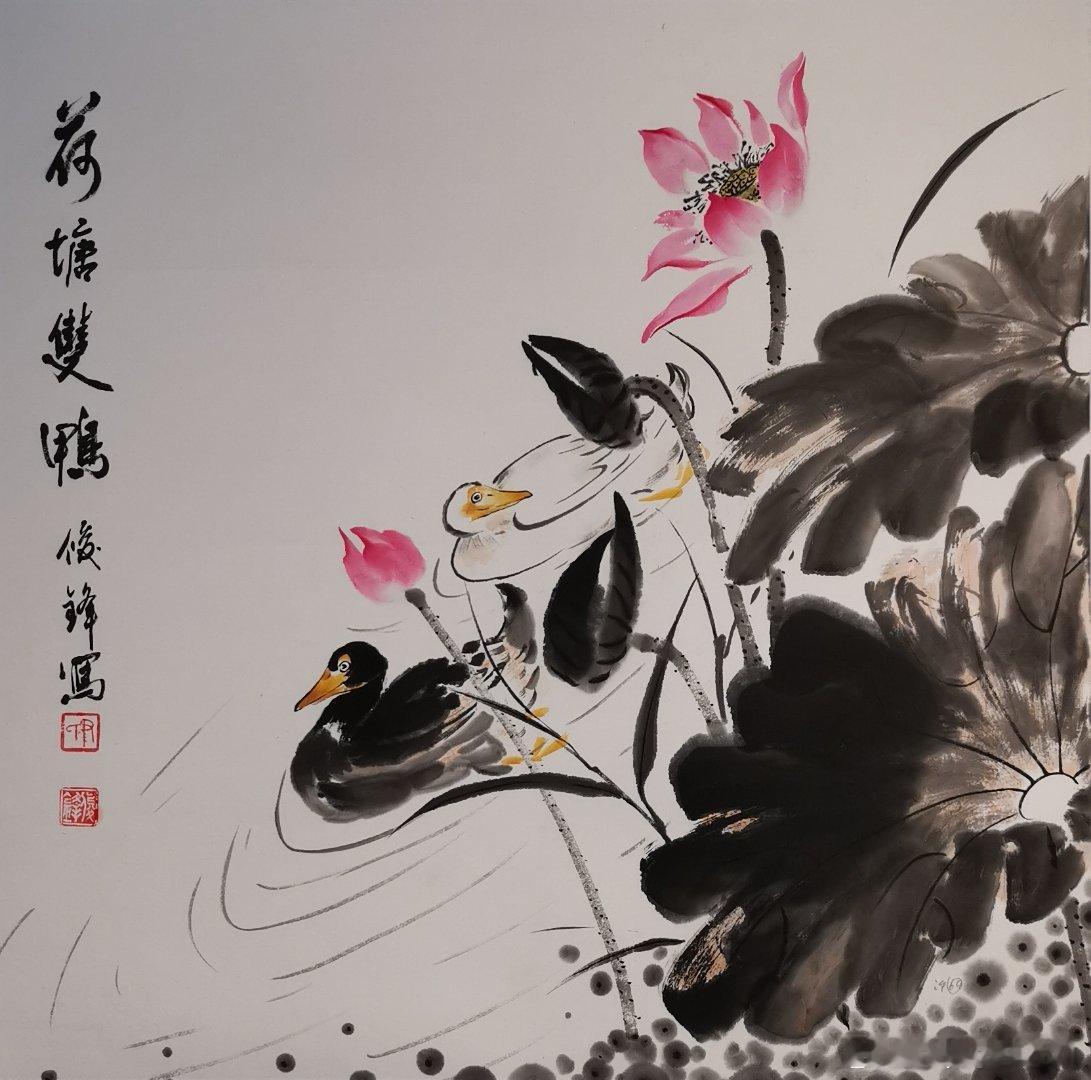 荷塘雙鴨
俊鋒寫